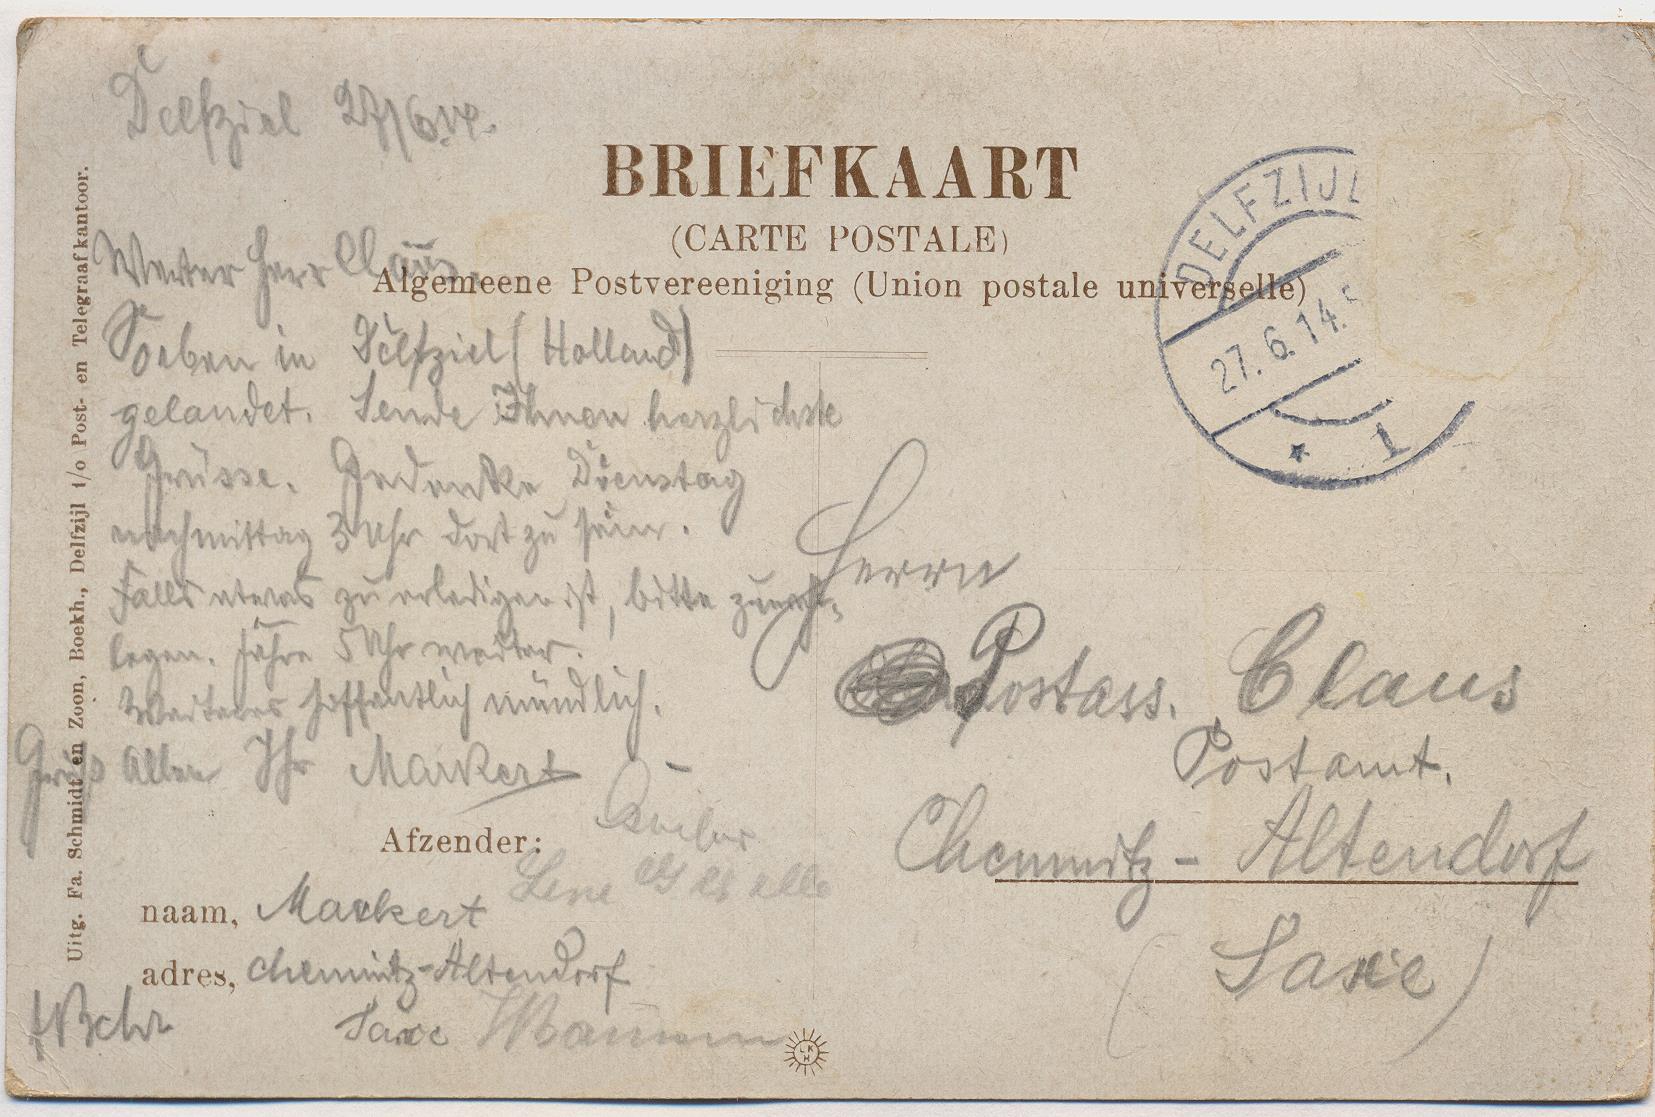 Delfziel 27/6.14.
BRIEFKAART
(CARTE POSTALE)
Algemeene Postvereeniging (Union postale universelle)
DELFZIJL
27.6.14.
* 1
Werter Herr Claus,
Soeben in Delfziel (Holland)
gelandet. Sende Ihnen herzlichste
Grüsse. Gedenke Dienstag
nachmittag 3 Uhr dort zu sein.
Falls etwas zu erledigen ist, bitte
legen. Fahre 5 Uhr weiter.
Weiteres hoffentlich mündlich.
Gruß Allen Ihr Markert
Afzender:
naam, Markert
adres, Chemnitz-Altendorf
Saxe
Herrn
Postass. Claus
Postamt.
Chemnitz-Altendorf
(Saxe)
Uitg. Fa. Schmidt en Zoon, Boekh., Delfzijl t/o Post- en Telegraafkantoor.
LKH